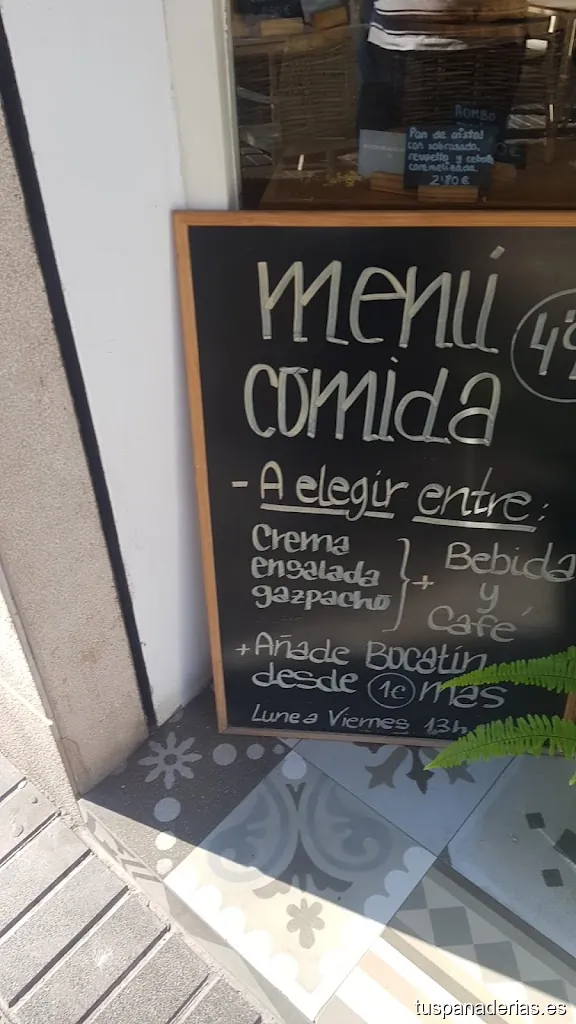 Pan de cristal
con sobrasada,
revuelto y cebolla
caramelizada
2'80€
menú
comida
- A elegir entre:
Crema
ensalada
gazpacho
+ Bebida
y
Café
+ Añade Bocatín
desde 1€ más
Lunea Viernes 13h
tuspanaderias.es